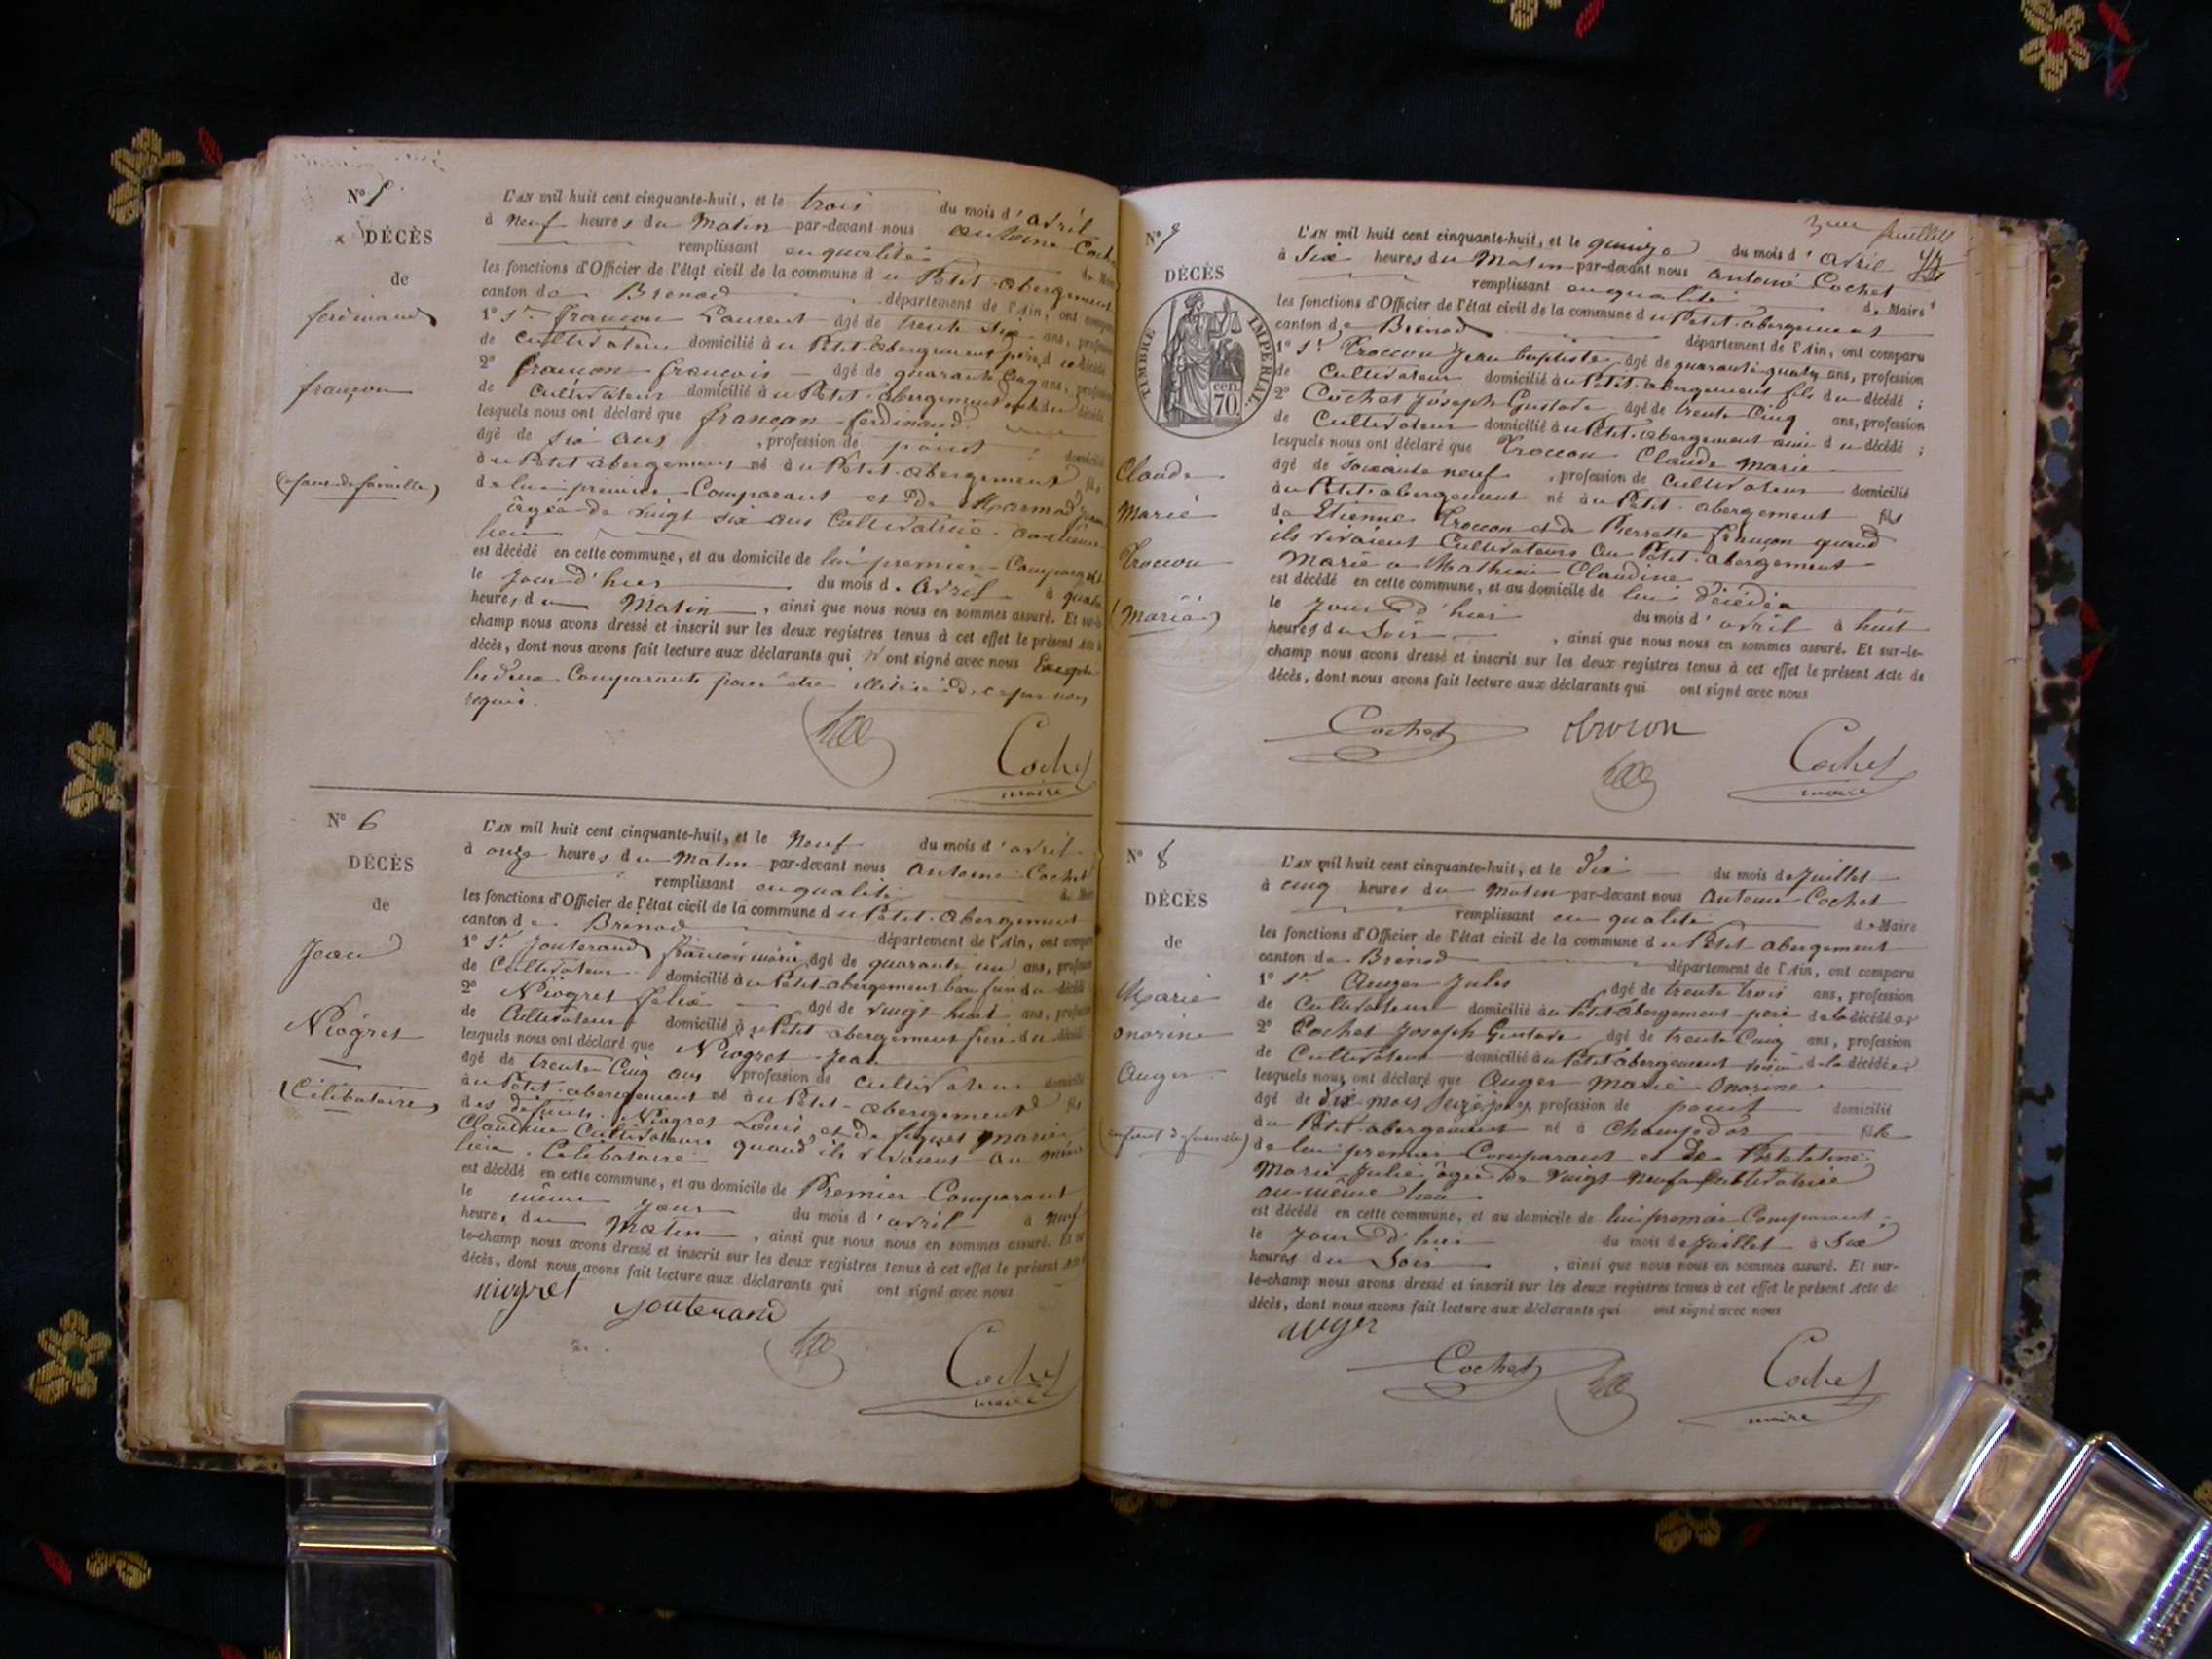 N° 5
DÉCÈS
de
ferdinand
françon
(enfant de famille)
L'AN mil huit cent cinquante-huit, et le trois du mois d'avril
à neuf heures du Matin par-devant nous antoine Coch
remplissant en qualité de Mai
les fonctions d'Officier de l'état civil de la commune du Petit-abergement
canton de Brenod département de l'Ain, ont compa
1° Sr françon Laurent âgé de trente six ans, profess
de Cultivateur domicilié à u Petit-abergement père du décédé
2° françon françois âgé de quarante cinq ans, profess
de Cultivateur domicilié à u Petit-abergement du décédé
lesquels nous ont déclaré que françon ferdinand
âgé de six ans, profession de point domicilié
à u Petit abergement né à u Petit-abergement fils
de lui premier Comparant et de
âgée de vingt six ans Cultivatrice
lieu
est décédé en cette commune, et au domicile de lui premier Comparant
le jour d'hier du mois d'Avril à quatre
heures du Matin, ainsi que nous nous en sommes assuré. Et sur-le
champ nous avons dressé et inscrit sur les deux registres tenus à cet effet le présent Acte d
décès, dont nous avons fait lecture aux déclarants qui n'ont signé avec nous Excepté
les deux Comparants pour être illitérés de ce par nous
requis.
Cochet
maire
N° 6
DÉCÈS
de
Jean
Niogret
(Célibataire)
L'AN mil huit cent cinquante-huit, et le Neuf du mois d'avril
à onze heures du Matin par-devant nous Antoine Cochet
remplissant en qualité de Mai
les fonctions d'Officier de l'état civil de la commune du Petit-abergement
canton de Brenod département de l'Ain, ont compar
1° Sr Jouterand françois marie âgé de quarante un ans, profession
de Cultivateur domicilié à u Petit-abergement beau frère du décédé
2° Niogret felix âgé de vingt huit ans, profess
de Cultivateur domicilié à u Petit abergement frère du décédé
lesquels nous ont déclaré que Niogret Jean
âgé de trente Cinq ans, profession de cultivateur domicilié
à u Petit-abergement né à u Petit-abergement fils
des défunts Niogret Louis et de marie
Claudine Cultivateurs quand ils vivaient au même
lieu. Célibataire
est décédé en cette commune, et au domicile de Premier Comparant
le même jour du mois d'avril à neuf
heures du Matin, ainsi que nous nous en sommes assuré. Et sur
le-champ nous avons dressé et inscrit sur les deux registres tenus à cet effet le présent Ac
décès, dont nous avons fait lecture aux déclarants qui ont signé avec nous
niogret jouterand
Cochet
maire
3me feuillet
N° 7
DÉCÈS
TIMBRE IMPERIAL
cen
70
Claude
Marie
Troccon
(Marié)
L'AN mil huit cent cinquante-huit, et le quinze du mois d'avril
à Six heures du Matin par-devant nous Antoine Cochet
remplissant en qualité de Maire
les fonctions d'Officier de l'état civil de la commune du Petit-abergement
canton de Brenod département de l'Ain, ont comparu
1° Sr Troccon Jean baptiste âgé de quarante quatre ans, profession
de Cultivateur domicilié à u Petit-abergement fils du décédé ;
2° Cochet Joseph Gustave âgé de trente Cinq ans, profession
de Cultivateur domicilié à u Petit-abergement ami du décédé ;
lesquels nous ont déclaré que Troccon Claude Marie
âgé de Soixante neuf, profession de Cultivateur domicilié
à u Petit-abergement né à u Petit-abergement fils
de Etienne Troccon et de Pierrette françon quand
ils vivaient Cultivateurs au Petit-abergement
Marié a Mathieu Claudine
est décédé en cette commune, et au domicile de lui décédé
le jour d'hier du mois d'avril à huit
heures du Soir, ainsi que nous nous en sommes assuré. Et sur-le-
champ nous avons dressé et inscrit sur les deux registres tenus à cet effet le présent Acte de
décès, dont nous avons fait lecture aux déclarants qui ont signé avec nous
Cochet Cochet
maire
N° 8
DÉCÈS
de
Marie
onorine
Auger
(enfant de famille)
L'AN mil huit cent cinquante-huit, et le dix du mois de Juillet
à cinq heures du Matin par-devant nous Antoine Cochet
remplissant en qualité de Maire
les fonctions d'Officier de l'état civil de la commune du Petit abergement
canton de Brenod département de l'Ain, ont comparu
1° Sr Auger Jules âgé de trente trois ans, profession
de Cultivateur domicilié à u Petit-abergement père de la décédée ;
2° Cochet Joseph Gustave âgé de trente Cinq ans, profession
de Cultivateur domicilié à u Petit abergement voisin de la décédée ;
lesquels nous ont déclaré que Auger Marie Onorine
âgé de dix mois seize jours, profession de point domicilié
à u Petit-abergement né à Champdor fille
de lui premier Comparant et de
Marie Julie âgée de vingt neuf Cultivatrice
au même lieu
est décédé en cette commune, et au domicile de lui premier Comparant
le jour d'hier du mois de Juillet à Six
heures du Soir, ainsi que nous nous en sommes assuré. Et sur-
le-champ nous avons dressé et inscrit sur les deux registres tenus à cet effet le présent Acte de
décès, dont nous avons fait lecture aux déclarants qui ont signé avec nous
auger
Cochet Cochet
maire